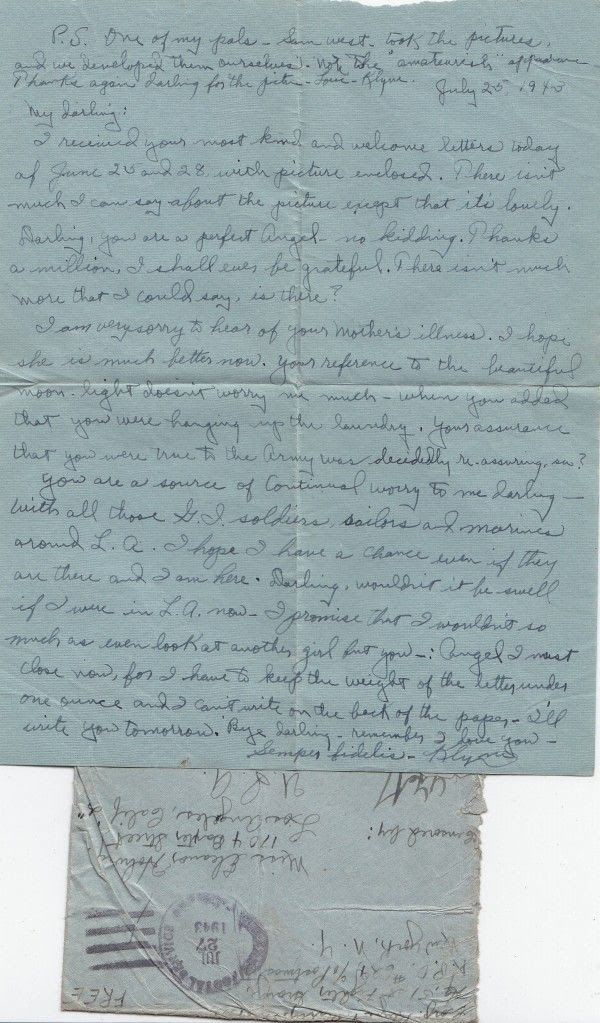 P.S. One of my pals - Sam West - took the pictures,
and we developed them ourselves. Note the "amateurish" appearance
Thanks again darling for the pictur - Love - Klyne
July 25, 1943
My darling:
I received your most kind and welcome letters today
of June 25 and 28, with picture enclosed. There isn't
much I can say about the picture except that it's lovely.
Darling, you are a perfect Angel - no kidding. Thanks
a million, I shall ever be grateful. There isn't much
more that I could say, is there?
I am very sorry to hear of your Mother's illness. I hope
she is much better now. Your reference to the beautiful
moon-light doesn't worry me much - when you added
that you were hanging up the laundry. Your assurance
that you were true to the Army was decidedly re-assuring,
You are a source of Continual worry to me darling -
With all those G.I. soldiers, sailors and marines
around L.A. I hope I have a chance even if they
are there and I am here. Darling, wouldn't it be swell
if I were in L.A. now - I promise that I wouldn't so
much as even look at another girl but you -: Angel I must
close now, for I have to keep the weight of the letter under
one ounce and I can't write on the back of the paper - I'll
write you tomorrow. Bye darling - remember I love you -
Semper fidelis - Klyne
FREE
New York, N.Y.
POSTAL SERVICE
JUL
27
1943
Miss Eleanor
1704 Street
Los Angeles, Calif
U.S.A.
Censored by: